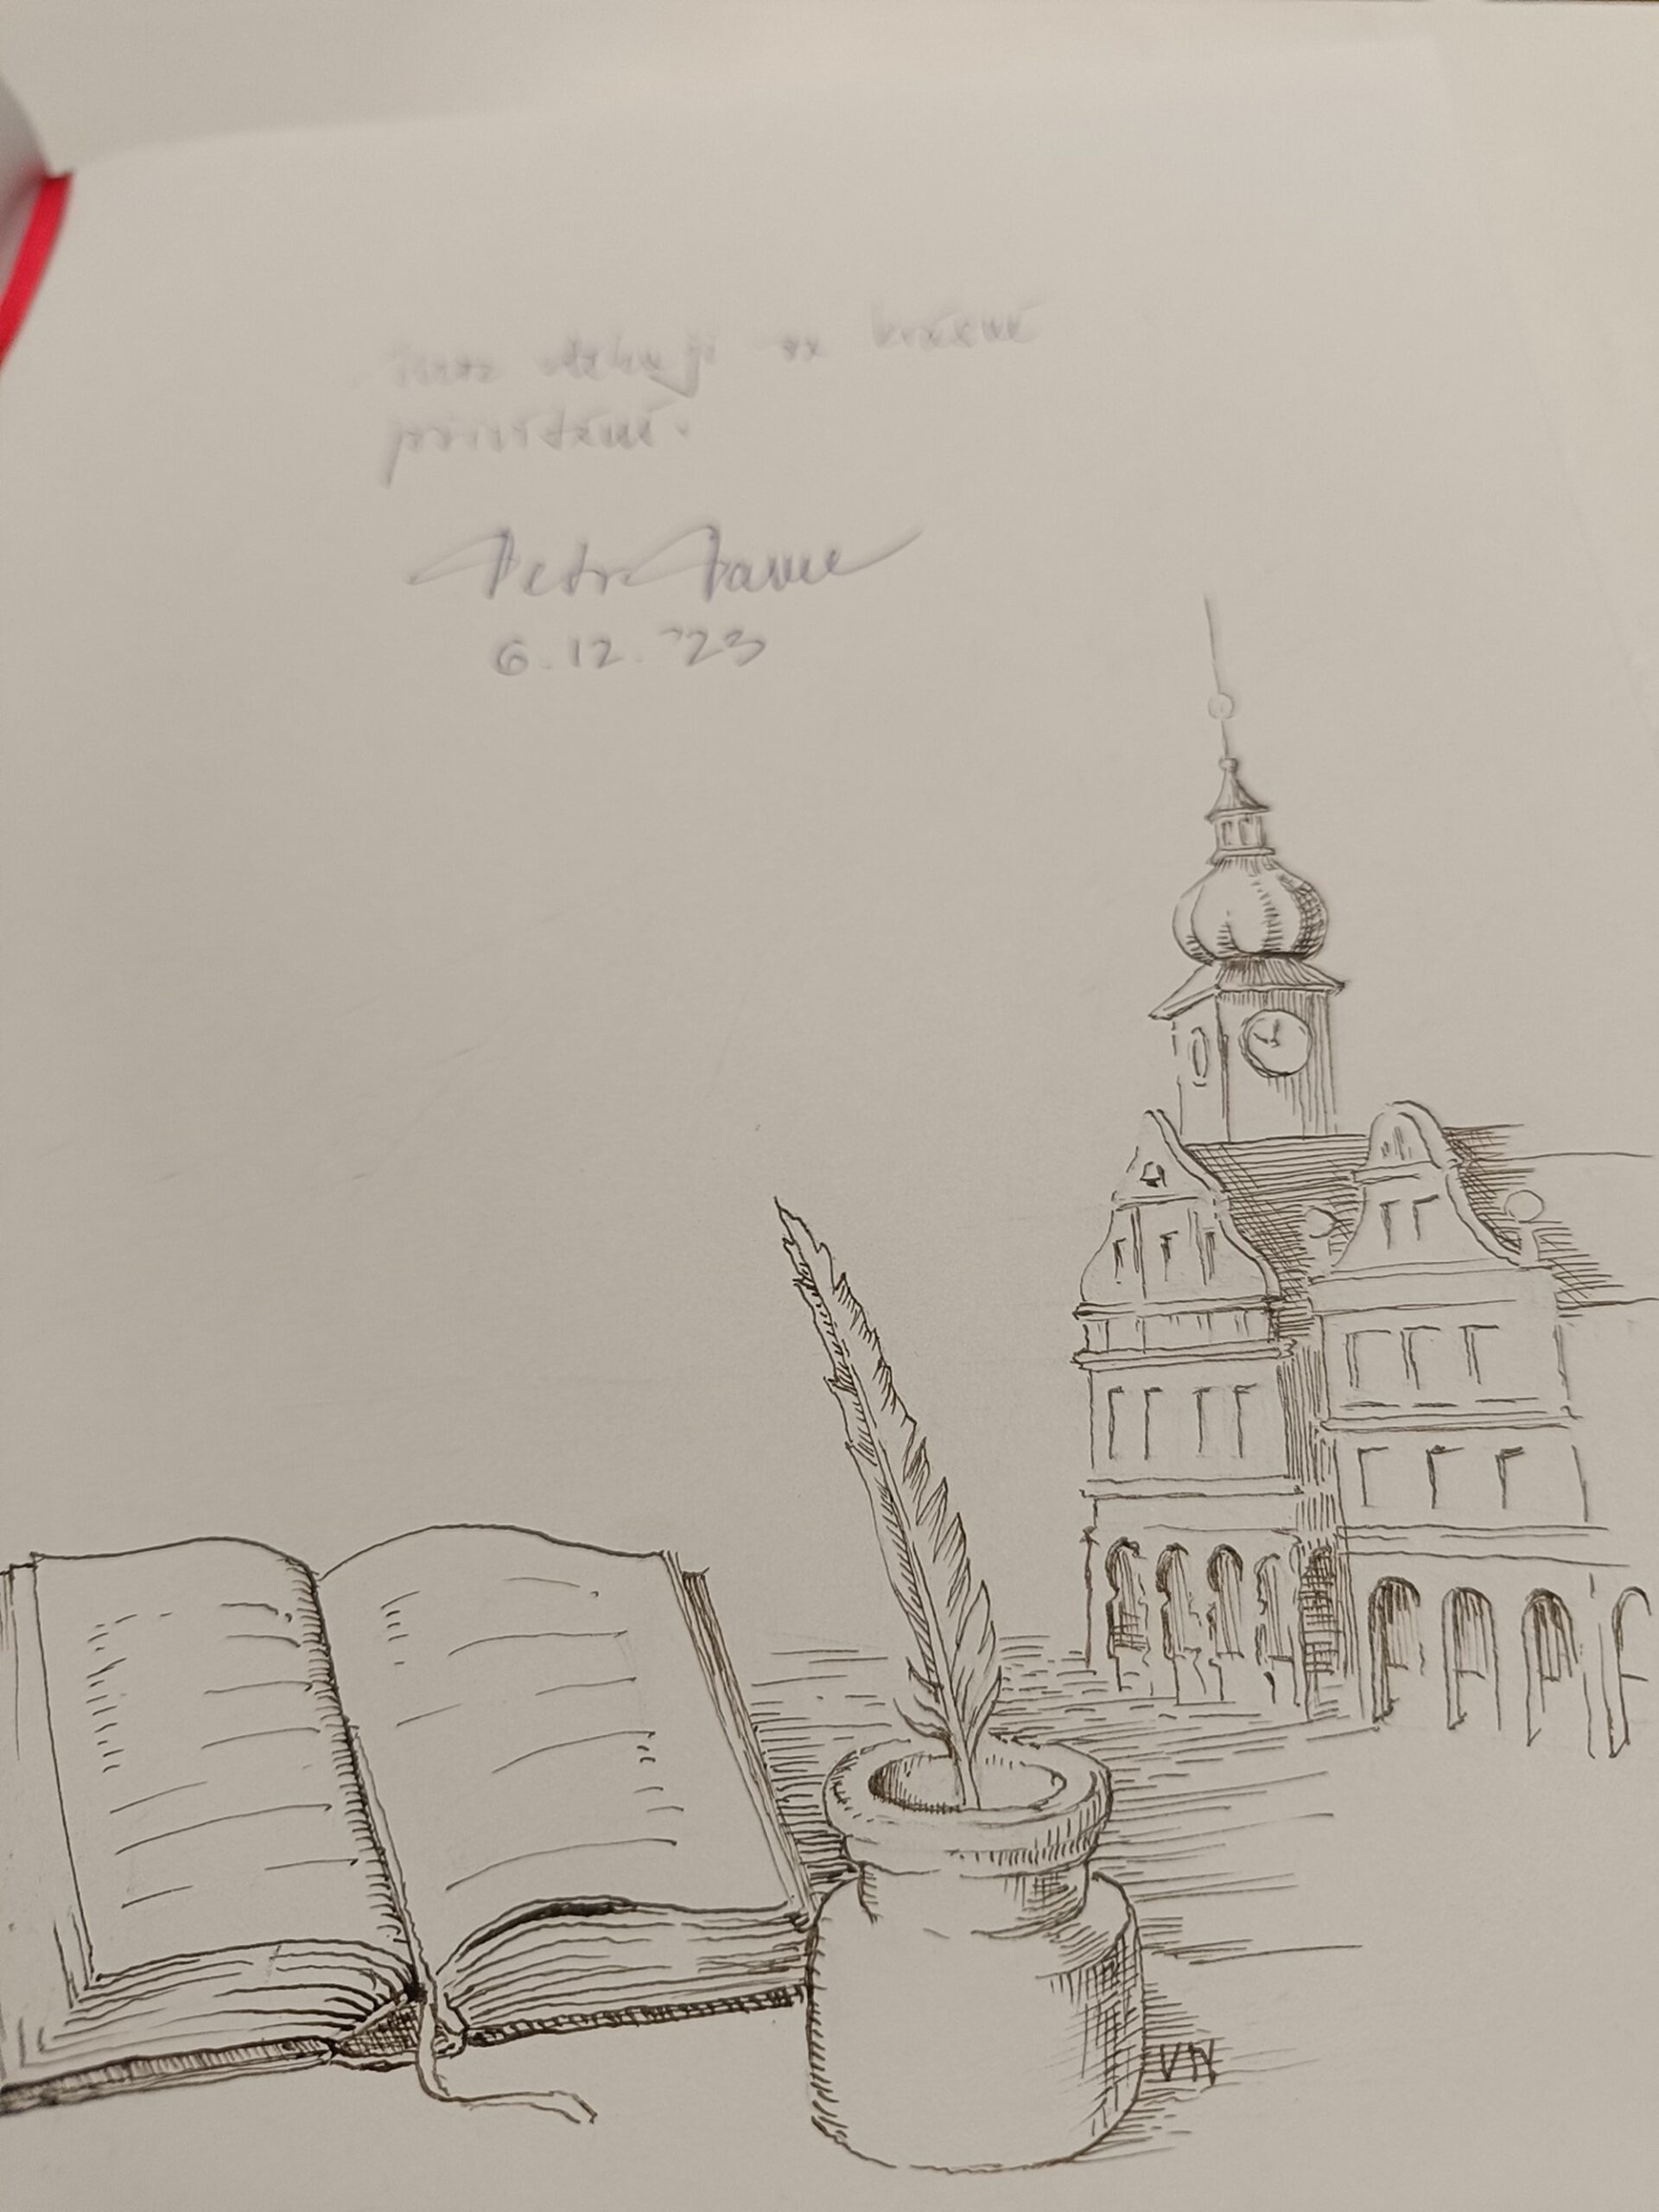 děkuji za krásné
přivítání.
Petr Pavel
6.12.'23
VN